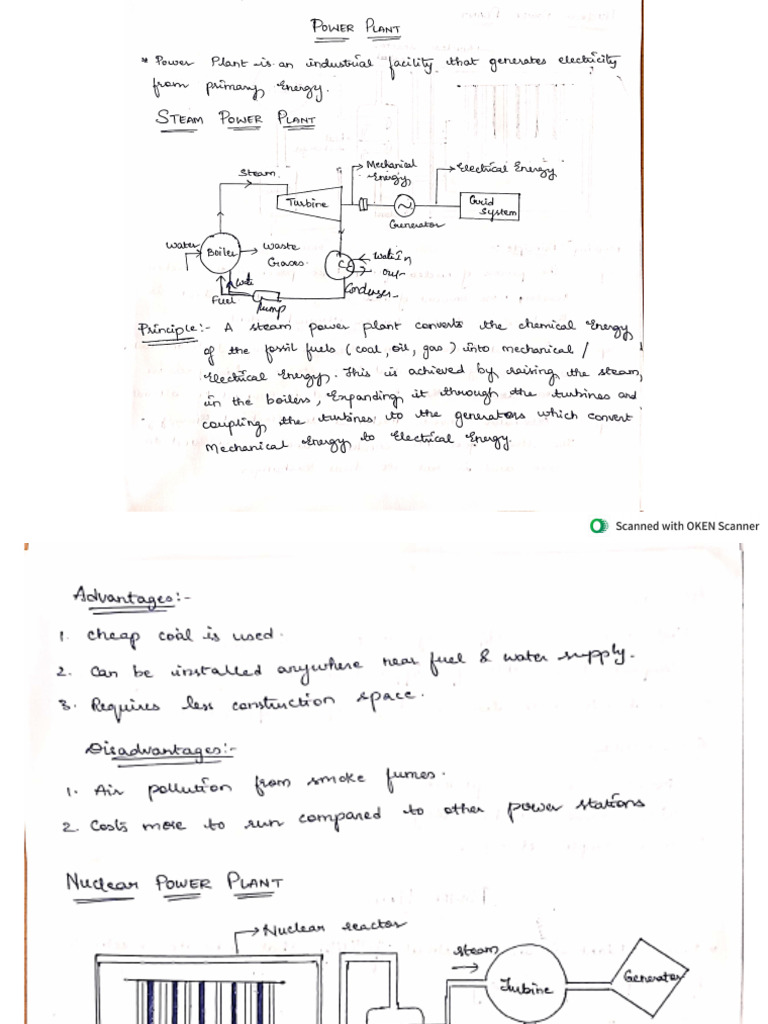 POWER PLANT
* Power Plant is an industrial facility that generates electricity
from primary Energy.
STEAM POWER PLANT
Steam
Mechanical
Energy
Electrical Energy
Turbine
Generator
Grid
System
Water
Boiler
Waste
Gases
Water In
Out
Condenser
Fuel
Pump
Principle:- A steam power plant converts the chemical Energy
of the fossil fuels (coal, oil, gas) into mechanical /
Electrical Energy. This is achieved by raising the steam,
in the boilers, Expanding it through the turbines and
coupling the turbines to the generators which convert
Mechanical Energy to Electrical Energy.
Scanned with OKEN Scanner
Advantages:-
1. cheap coal is used.
2. Can be installed anywhere near fuel & water supply.
3. Requires less construction space.
Disadvantages:-
1. Air pollution from smoke fumes.
2. Costs more to run compared to other power stations
NUCLEAR POWER PLANT
Nuclear reactor
steam
Turbine
Generator